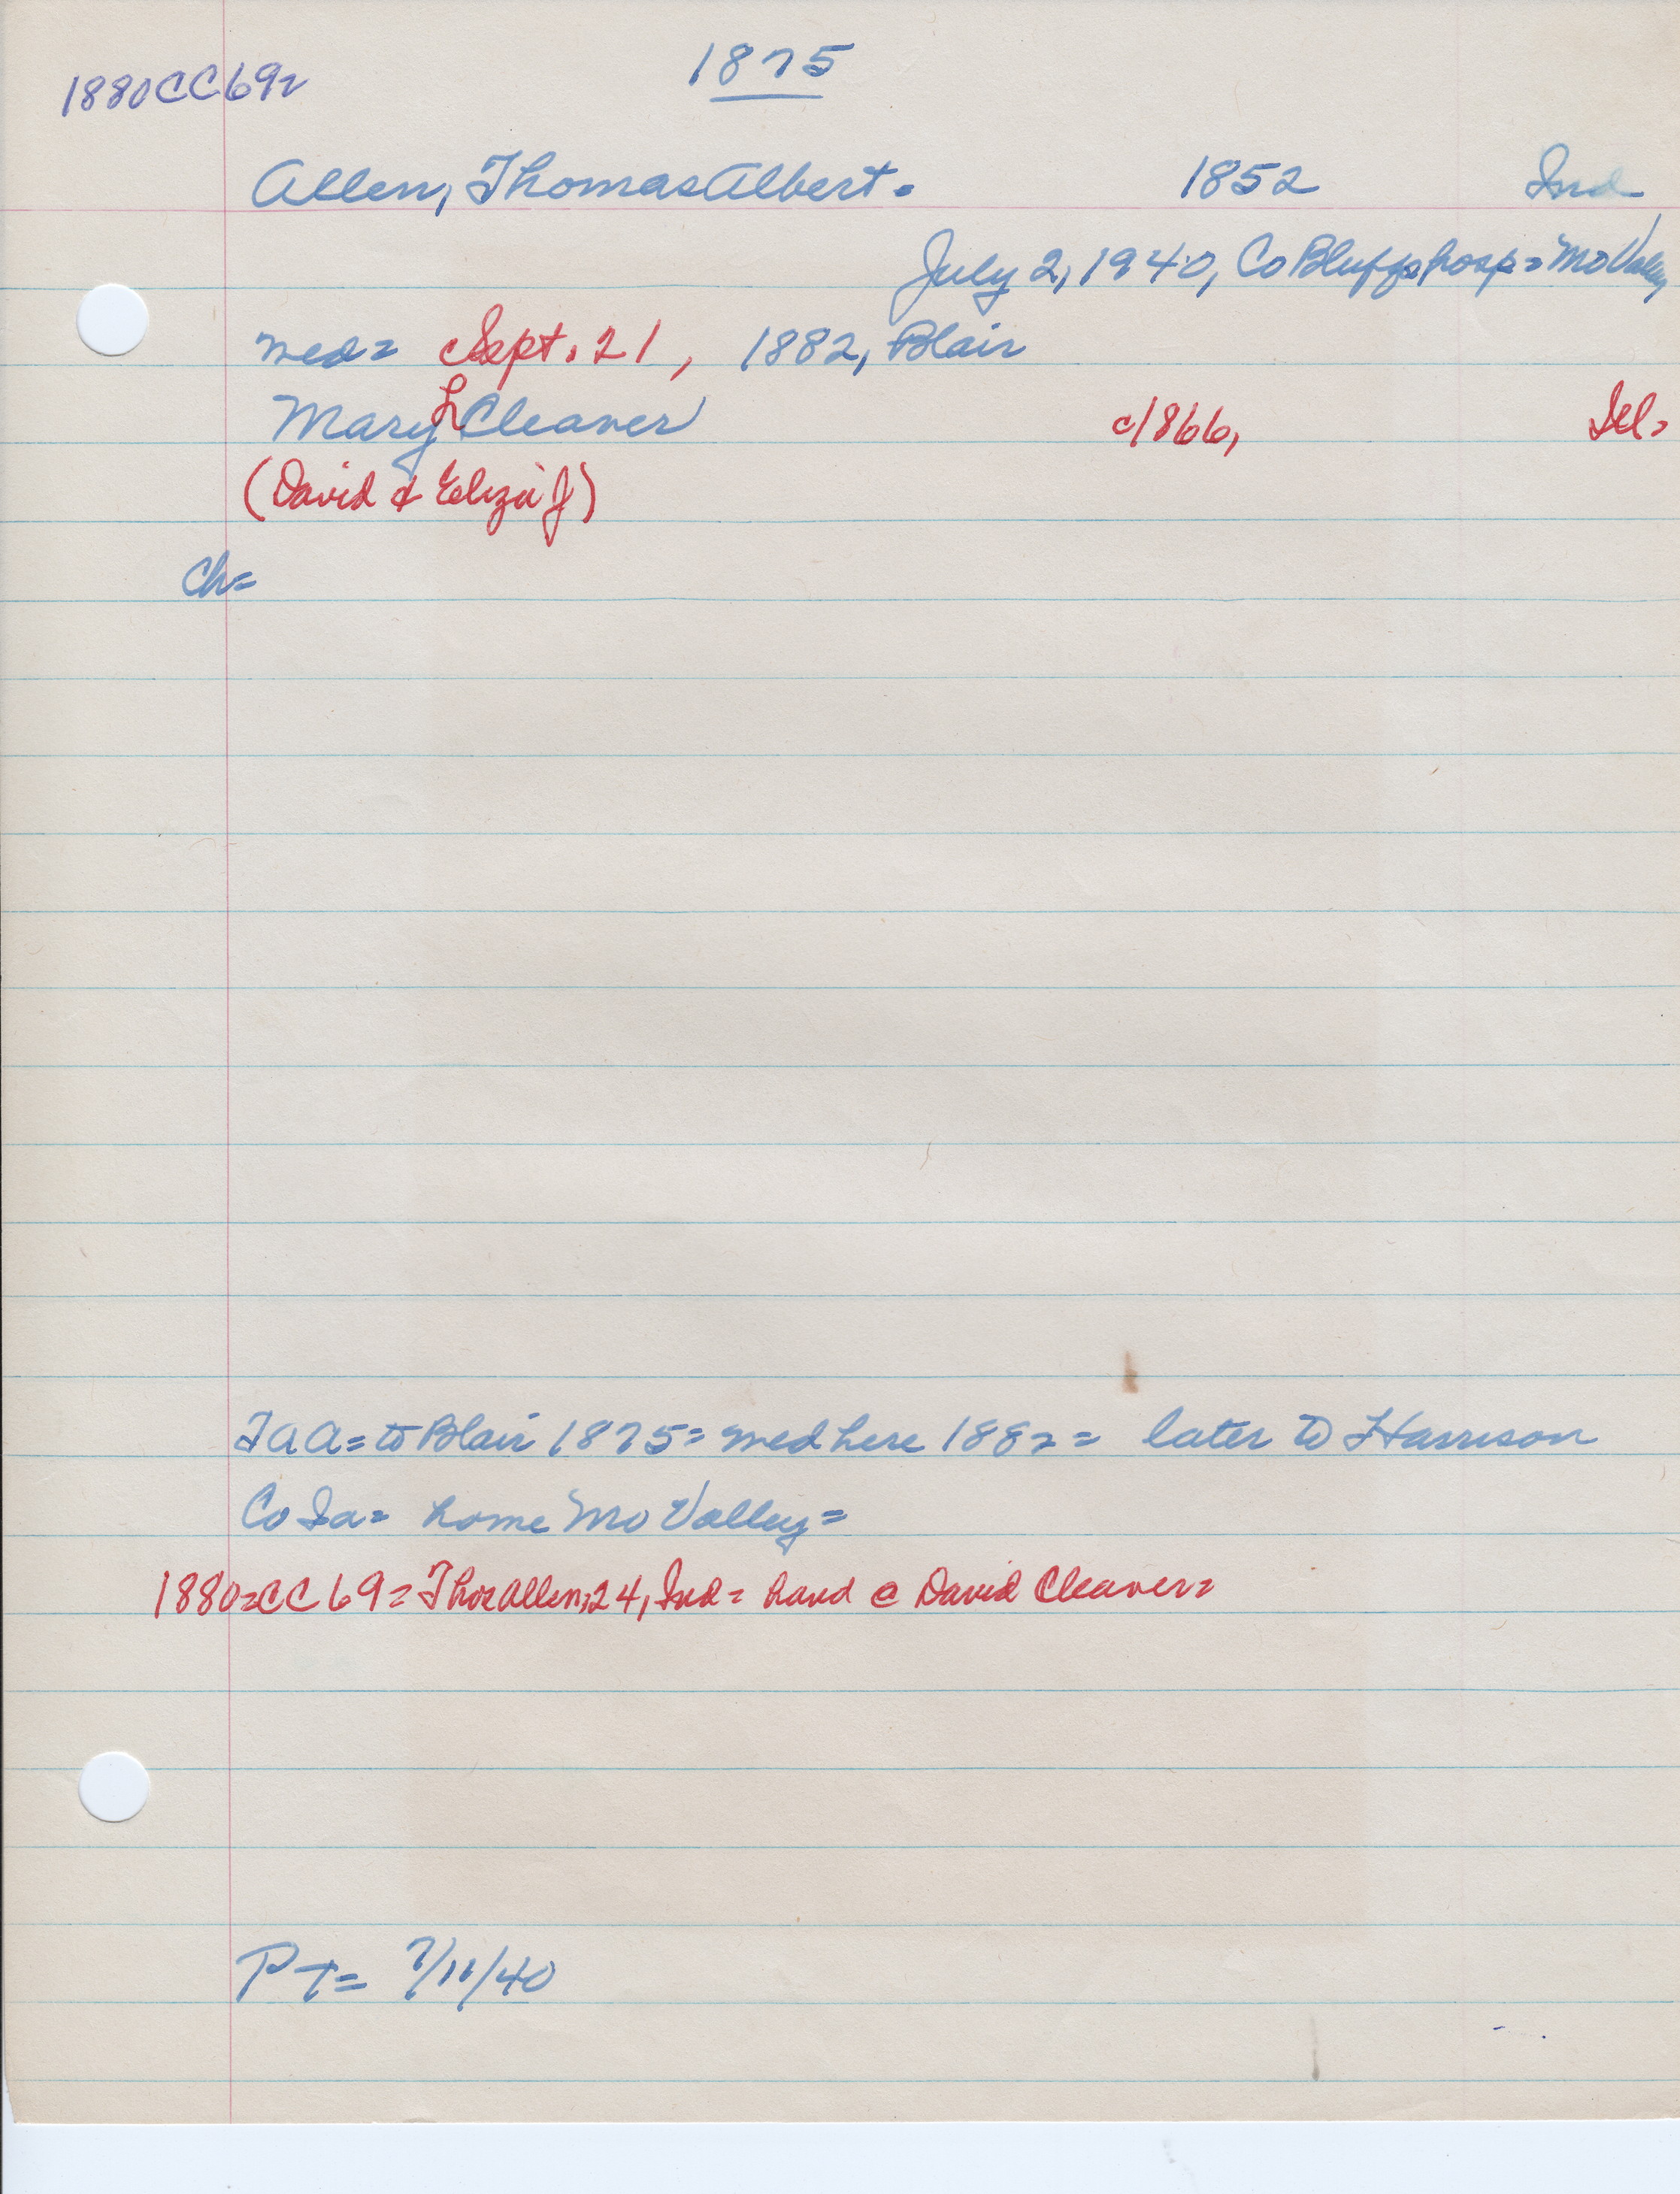 1875
1880CC69=
Allen, Thomas Albert = 1852 Ind
July 2, 1940, Co Bluffs hosp = Mo Valley
med = Sept. 21, 1882, Blair
Mary L Cleaver c1866, Ill=
(David & Eliza J)
Ch=
TAA = to Blair 1875 = med here 1882 = later to Harrison
Co Ia = home Mo Valley =
1880=CC69= Thos Allen, 24, Ind = hand @ David Cleaver=
PT= 7/11/40